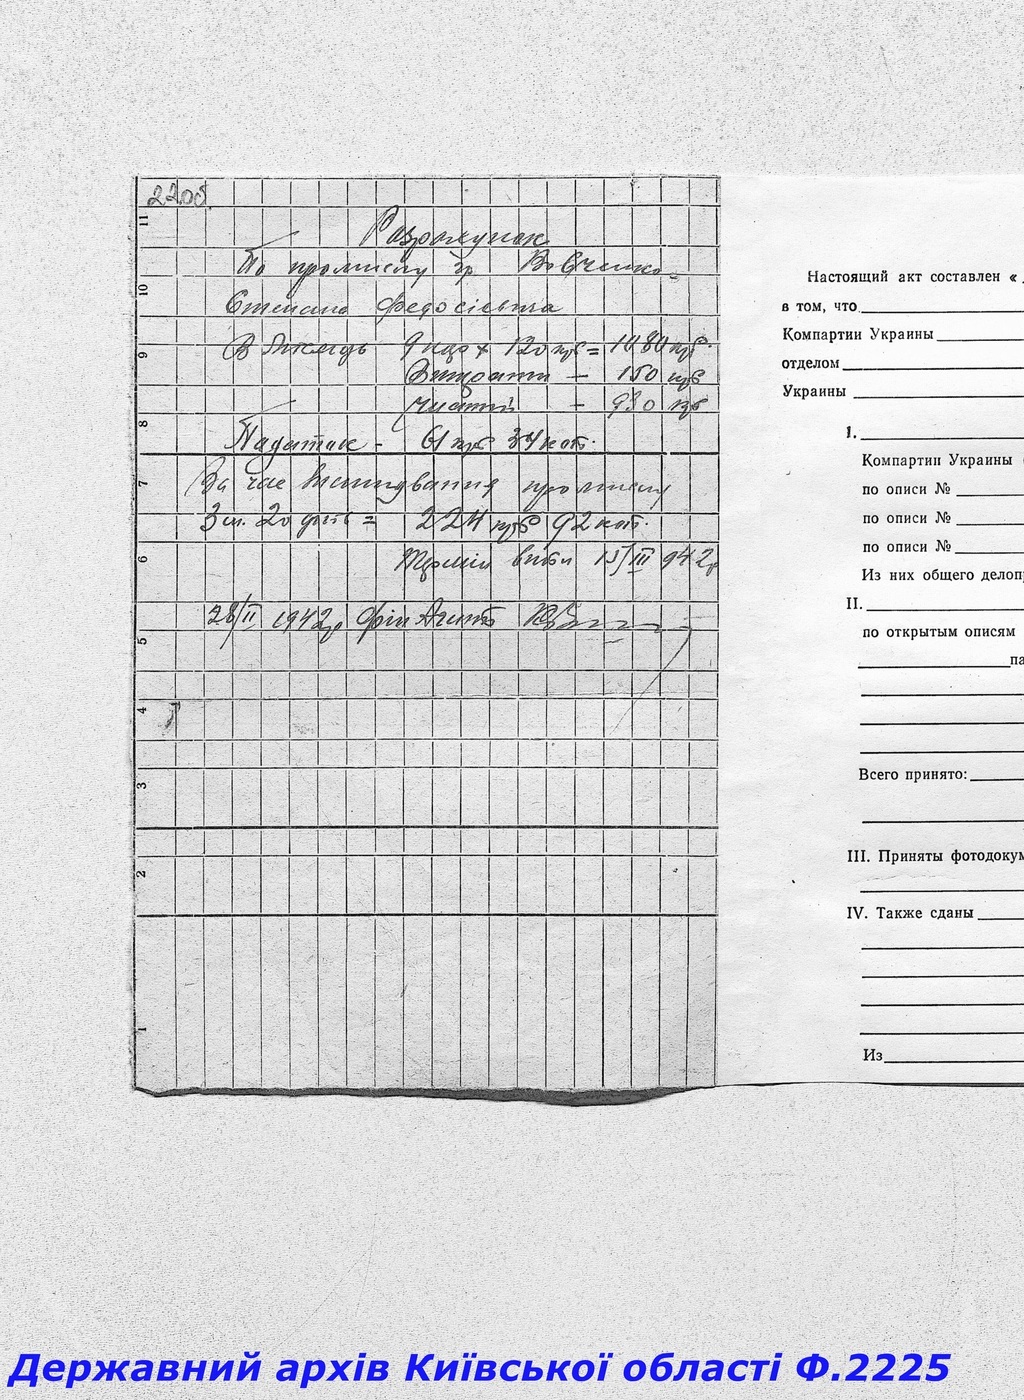 22об.
11
Розрахунок
По промислу гр. Вовченко
Степана Федосієвича
10
В тиждень 9 пар х 120 крб = 1080 крб.
9
Витрати — 150 крб
Чистий — 930 крб
8
Податок — 61 крб 34 коп.
За час виконування промислу
7
3 м. 20 днів = 224 крб 92 коп.
6
Термін 15/III 942р
28/II 1942р Фін Агент
5
4
3
2
1
Настоящий акт составлен «
в том, что
Компартии Украины
отделом
Украины
I.
Компартии Украины
по описи №
по описи №
по описи №
Из них общего делоп
II.
по открытым описям
па
Всего принято:
III. Приняты фотодокум
IV. Также сданы
Из
Державний архів Київської області Ф.2225